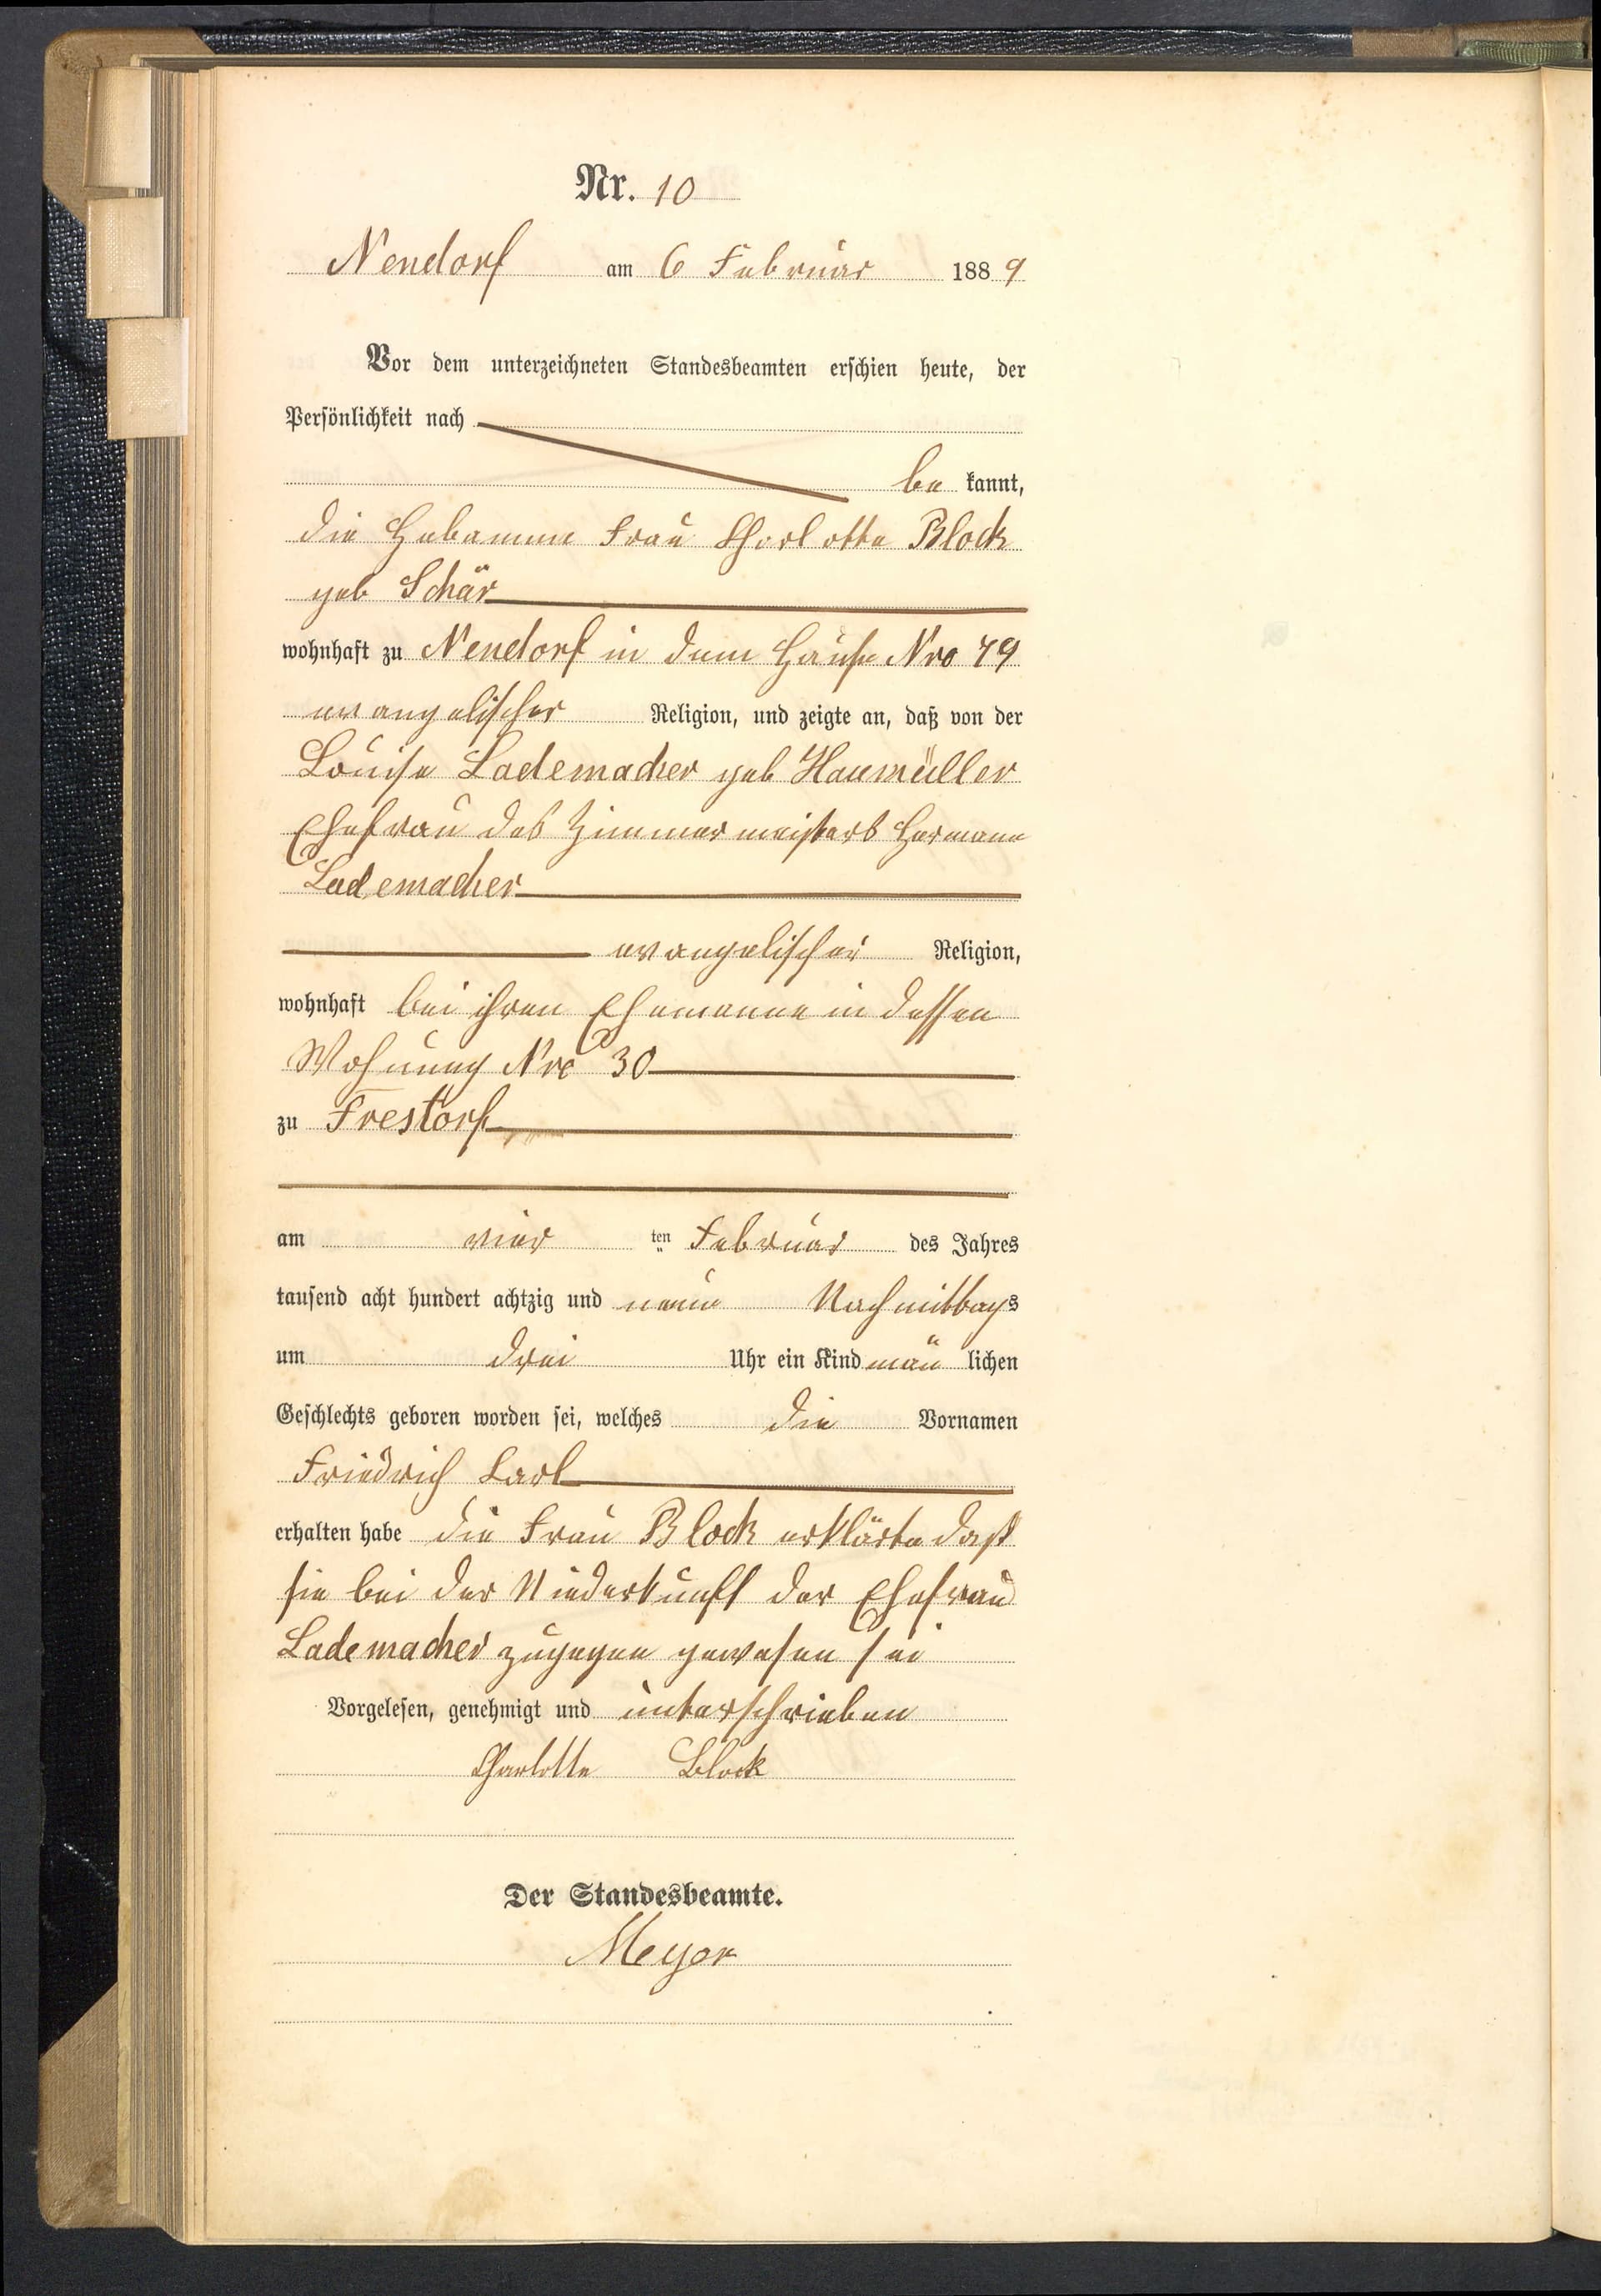 Nr. 10
Nendorf am 6 Februar 1889
Vor dem unterzeichneten Standesbeamten erschien heute, der
Persönlichkeit nach
be kannt,
die Hebamme Frau Charlotte Block
geb Schär
wohnhaft zu Nendorf in dem Hause Nro 79
evangelischer Religion, und zeigte an, daß von der
Louise Lademacher geb Haumüller
Ehefrau des Zimmermeisters Hermann
Lademacher
evangelischer Religion,
wohnhaft bei ihren Ehemanne in dessen
Wohnung Nro 30
zu Frestorf
am vier ten Februar des Jahres
tausend acht hundert achtzig und neun Nachmittags
um drei Uhr ein Kind män lichen
Geschlechts geboren worden sei, welches die Vornamen
Friedrich Carl
erhalten habe die Frau Block erklärte daß
sie bei der Niederkunft der Ehefrau
Lademacher zugegen gewesen sei
Vorgelesen, genehmigt und unterschrieben
Charlotte Block
Der Standesbeamte.
Meyer